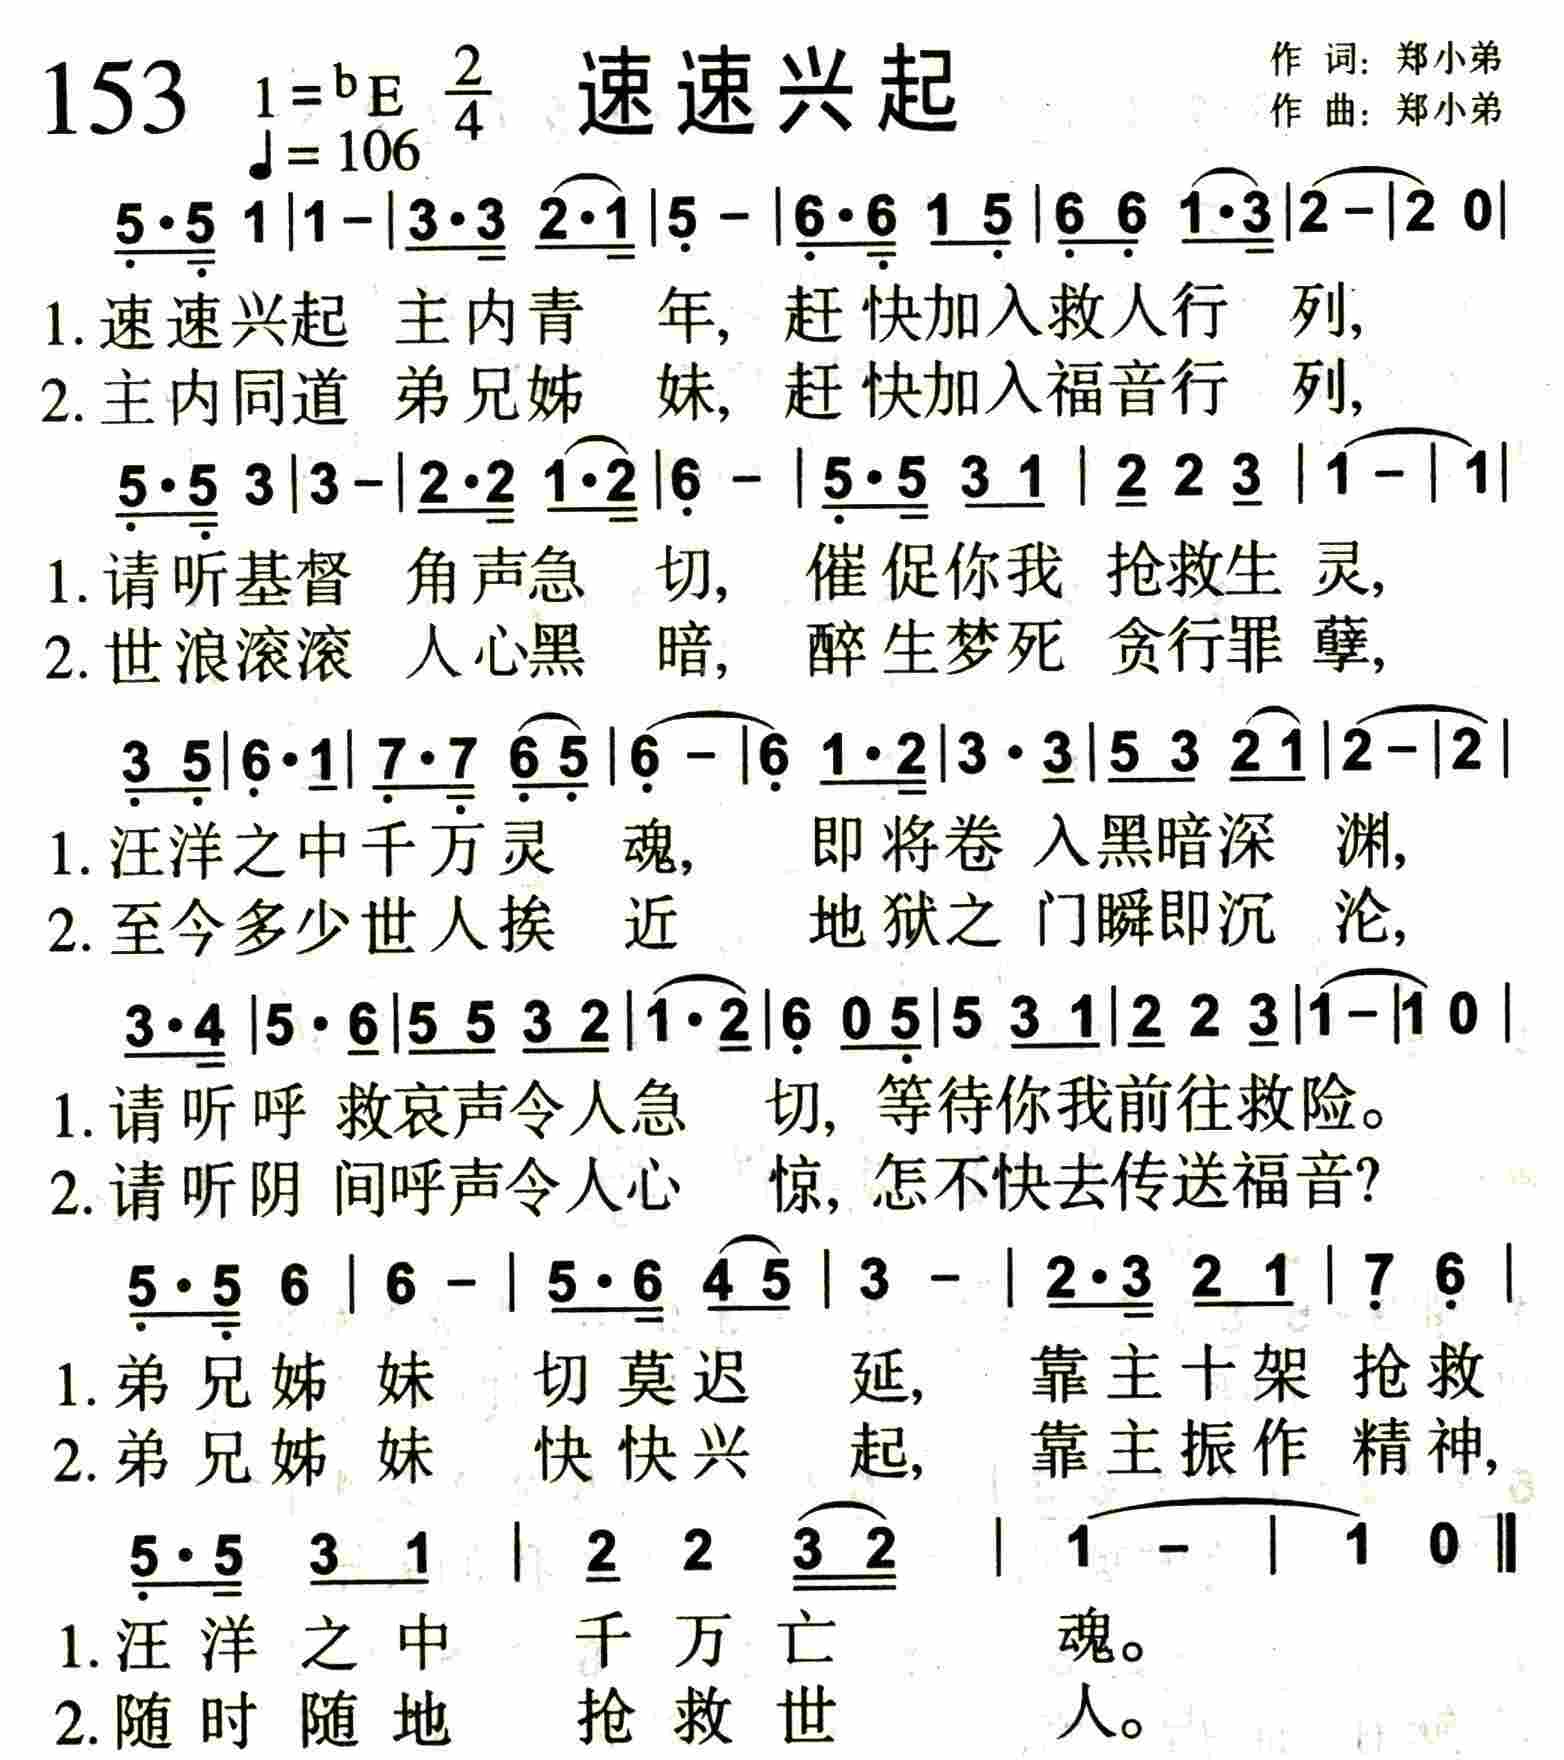 153 1=♭E 2/4 速速兴起 作 词：郑小弟
♩=106 作 曲：郑小弟
5·5 1|1-|3·3 2·1|5 -|6·6 1 5|6 6 1·3|2-|2 0|
1.速速兴起 主内青 年, 赶快加入救人行 列,
2.主内同道 弟兄姊 妹, 赶快加入福音行 列,
5·5 3|3-|2·2 1·2|6 -|5·5 3 1|2 2 3|1-|1|
1.请听基督 角声急 切, 催促你我 抢救生 灵,
2.世浪滚滚 人心黑 暗, 醉生梦死 贪行罪 孽,
3 5|6·1|7·7 6 5|6 -|6 1·2|3·3|5 3 2 1|2-|2|
1.汪洋之中千万灵 魂, 即将卷 入黑暗深 渊,
2.至今多少世人挨 近 地狱之 门瞬即沉 沦,
3·4|5·6|5 5 3 2|1·2|6 0 5|5 3 1|2 2 3|1-|1 0|
1.请听呼 救哀声令人急 切, 等待你我前往救险。
2.请听阴 间呼声令人心 惊, 怎不快去传送福音?
5·5 6|6 -|5·6 4 5|3 -|2·3 2 1|7 6|
1.弟兄姊妹 切莫迟 延, 靠主十架 抢救
2.弟兄姊妹 快快兴 起, 靠主振作 精神,
5·5 3 1|2 2 3 2|1 -|1 0‖
1.汪洋之中 千万亡 魂。
2.随时随地 抢救世 人。